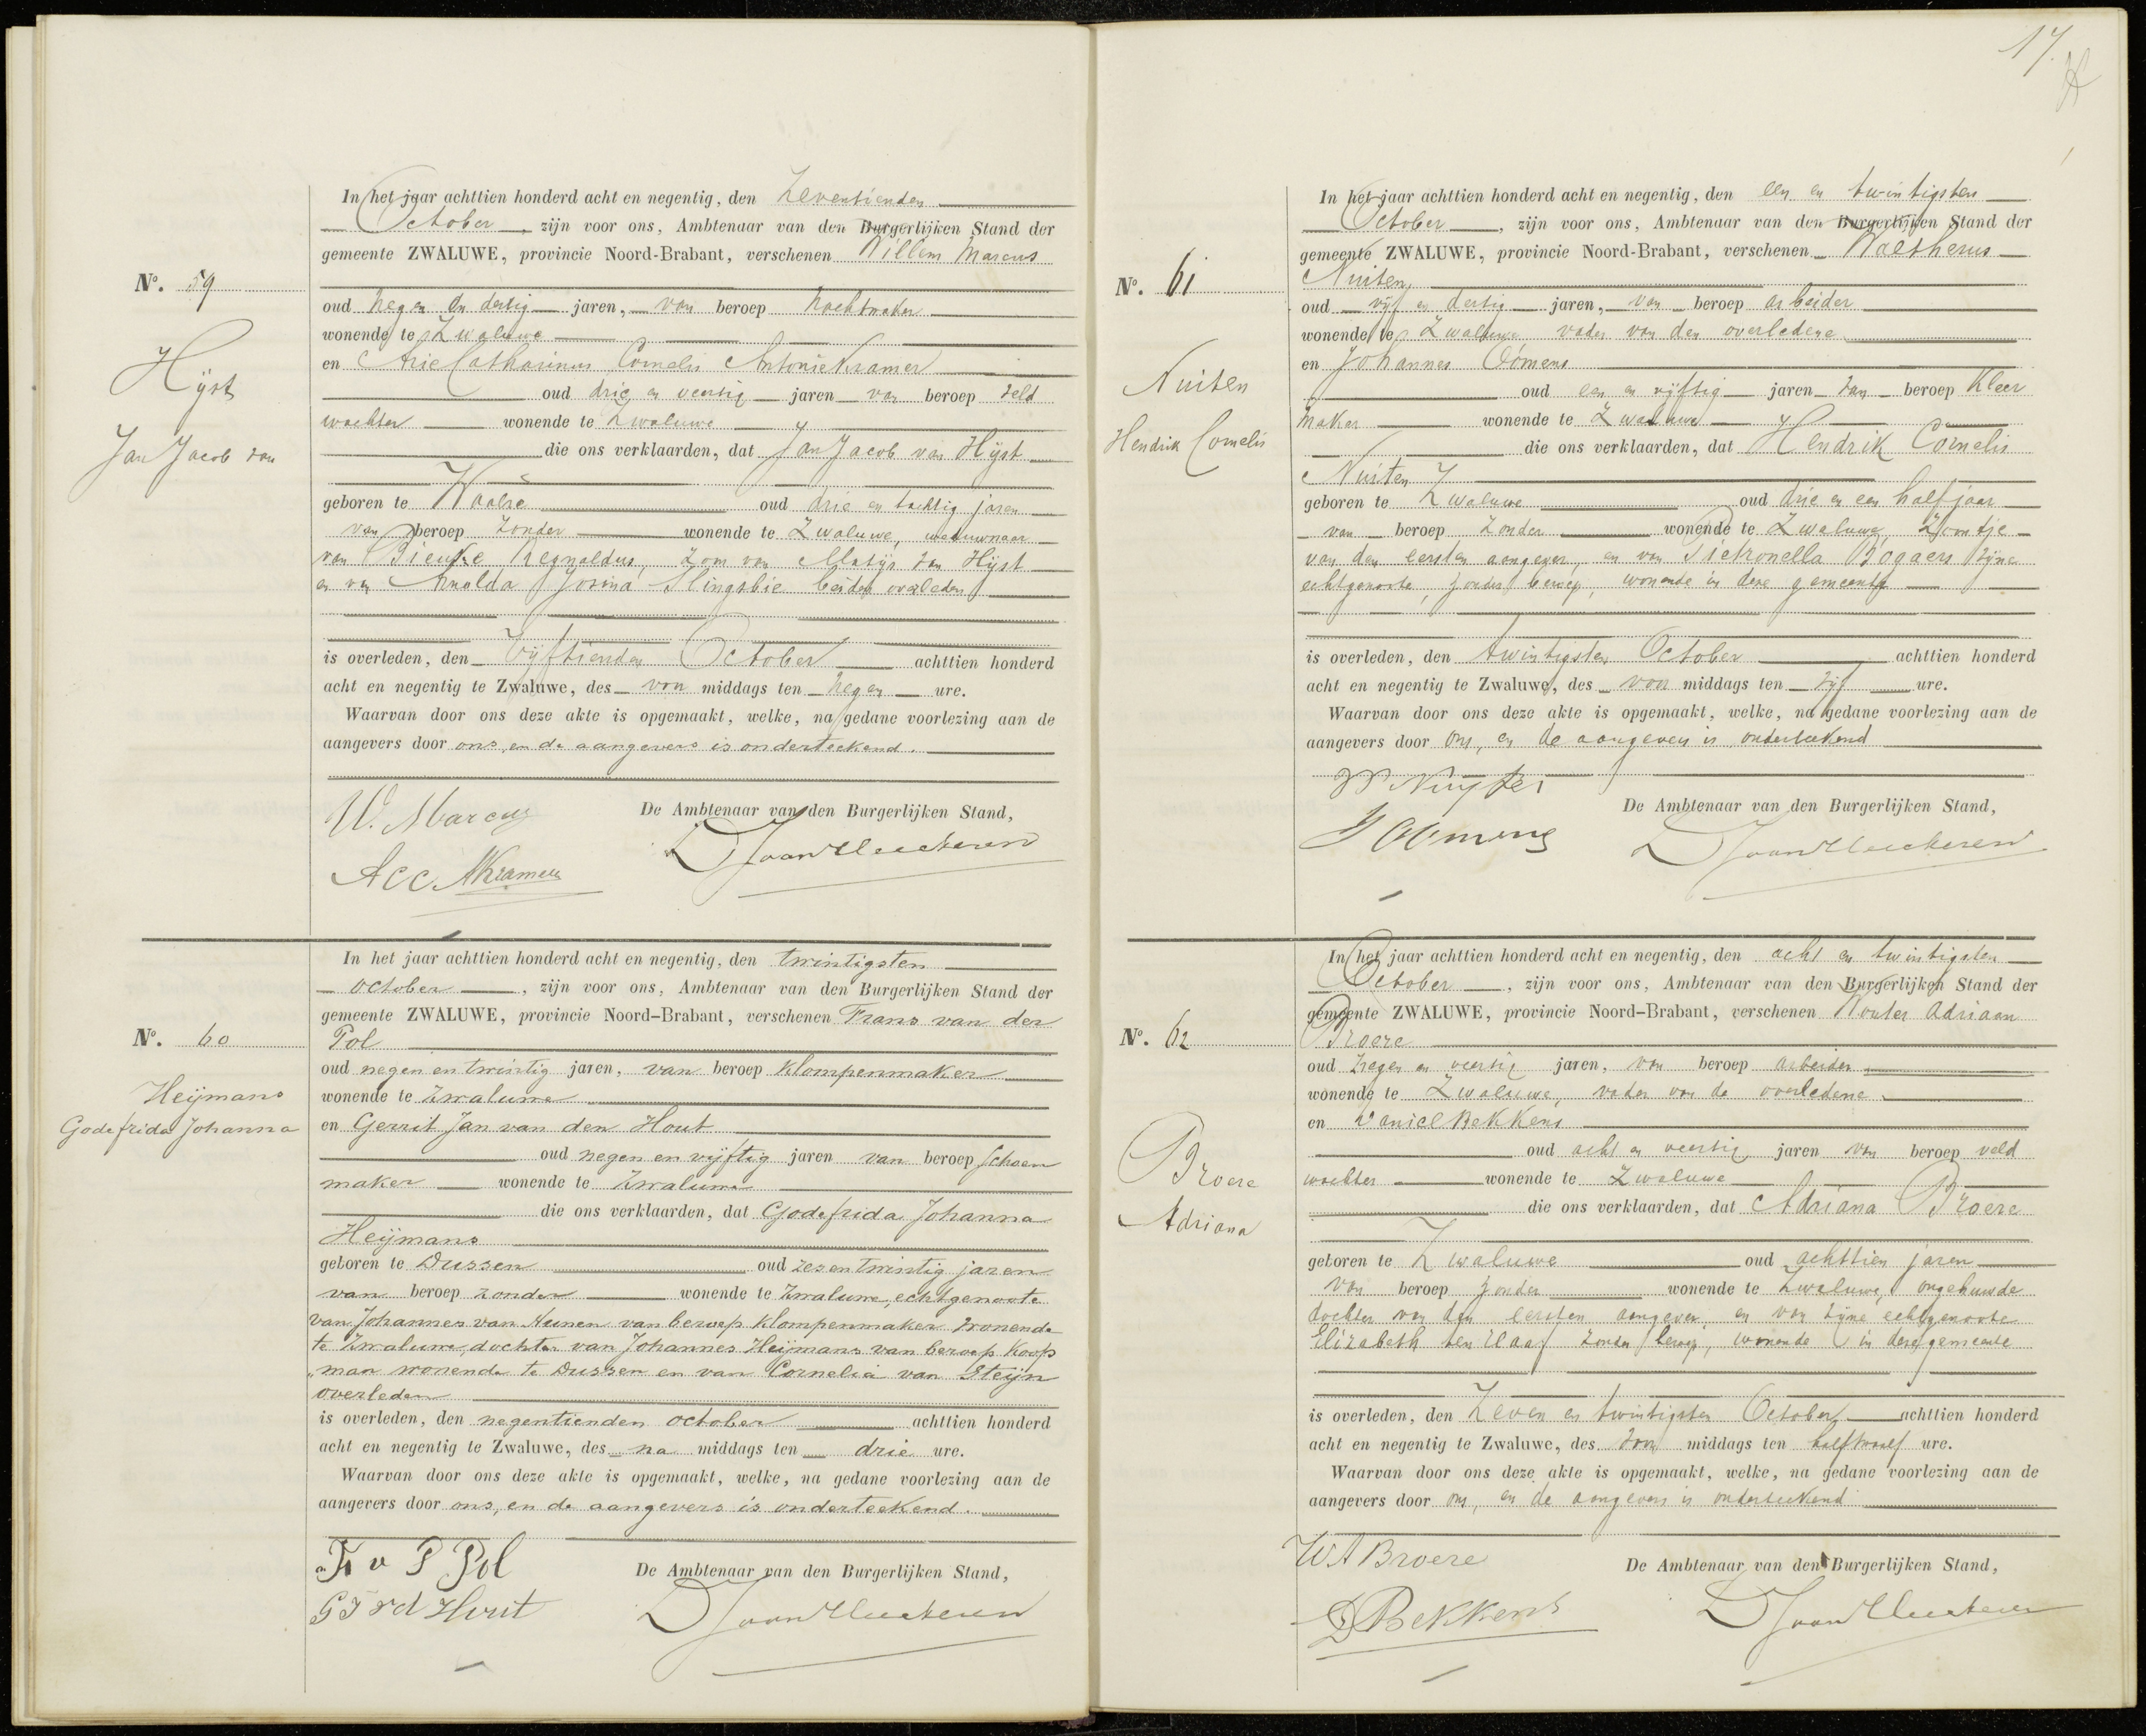 No. 59
Hijst
Jan Jacob van
In het jaar achttien honderd acht en negentig, den Zeventienden
October, zijn voor ons, Ambtenaar van den Burgerlijken Stand der
gemeente ZWALUWE, provincie Noord-Brabant, verschenen Willem Marcus
oud negen en dertig jaren, van beroep nachtwaker
wonende te Zwaluwe
en Arie Catharinus Cornelis Antonie Kramer
oud drie en veertig jaren van beroep veld
wachter wonende te Zwaluwe
die ons verklaarden, dat Jan Jacob van Hijst
geboren te Waalre oud drie en tachtig jaren
van beroep zonder wonende te Zwaluwe, weduwnaar
van Bieuke Regnoldus, zoon van Matijs van Hijst
en van Arnolda Josina Slingsbie beiden overleden
is overleden, den Vijftienden October achttien honderd
acht en negentig te Zwaluwe, des voor middags ten negen ure.
Waarvan door ons deze akte is opgemaakt, welke, na gedane voorlezing aan de
aangevers door ons, en de aangevers is onderteekend.
W. Marcus
De Ambtenaar van den Burgerlijken Stand,
ACC AKramer
No. 60
Heijmans
Godefrida Johanna
In het jaar achttien honderd acht en negentig, den twintigsten
october, zijn voor ons, Ambtenaar van den Burgerlijken Stand der
gemeente ZWALUWE, provincie Noord-Brabant, verschenen Frans van der
Pol
oud negen en twintig jaren, van beroep klompenmaker
wonende te Zwaluwe
en Gerrit Jan van den Hout
oud negen en vijftig jaren van beroep Schoen
maker wonende te Zwaluwe
die ons verklaarden, dat Godefrida Johanna
Heijmans
geboren te Dussen oud zes en twintig jaren
van beroep zonder wonende te Zwaluwe, echtgenoote
van Johannes van Hunen van beroep klompenmaker wonende
te Zwaluwe, dochter van Johannes Heijmans van beroep koop
"man wonende te Dussen en van Cornelia van Steijn
overleden
is overleden, den negentienden october achttien honderd
acht en negentig te Zwaluwe, des na middags ten drie ure.
Waarvan door ons deze akte is opgemaakt, welke, na gedane voorlezing aan de
aangevers door ons, en de aangevers is onderteekend.
F v P Pol
De Ambtenaar van den Burgerlijken Stand,
GJ vd Hout
17.
No. 61
Nuiten
Hendrik Cornelis
In het jaar achttien honderd acht en negentig, den een en twintigsten
October, zijn voor ons, Ambtenaar van den Burgerlijken Stand der
gemeente ZWALUWE, provincie Noord-Brabant, verschenen Waltherus
Nuiten
oud vijf en dertig jaren, van beroep arbeider
wonende te Zwaluwe vader van den overledene
en Johannes Oomens
oud een en vijftig jaren van beroep Kleer
maker wonende te Zwaluwe
die ons verklaarden, dat Hendrik Cornelis
Nuiten
geboren te Zwaluwe oud drie en een half jaar
van beroep zonder wonende te Zwaluwe, Zoontje
van den eersten aangever, en van Pietronella Bogaers zijne
echtgenoote, zonder beroep, wonende in deze gemeente
is overleden, den twintigsten October achttien honderd
acht en negentig te Zwaluwe, des voor middags ten vijf ure.
Waarvan door ons deze akte is opgemaakt, welke, na gedane voorlezing aan de
aangevers door ons, en de aangevers is onderteekend
W Nuijten
De Ambtenaar van den Burgerlijken Stand,
J Oomens
No. 62
Broere
Adriana
In het jaar achttien honderd acht en negentig, den acht en twintigsten
October, zijn voor ons, Ambtenaar van den Burgerlijken Stand der
gemeente ZWALUWE, provincie Noord-Brabant, verschenen Wouter Adriaan
Broere
oud negen en veertig jaren, van beroep arbeider
wonende te Zwaluwe, vader van de overledene
en Daniel Bekkens
oud acht en veertig jaren van beroep veld
wachter wonende te Zwaluwe
die ons verklaarden, dat Adriana Broere
geboren te Zwaluwe oud achttien jaren
van beroep zonder wonende te Zwaluwe, ongehuwde
dochter van den eersten aangever, en van zijne echtgenoote
Elizabeth ten Haaf zonder beroep, wonende in deze gemeente
is overleden, den Zeven en twintigsten October achttien honderd
acht en negentig te Zwaluwe, des voor middags ten half twaalf ure.
Waarvan door ons deze akte is opgemaakt, welke, na gedane voorlezing aan de
aangevers door ons, en de aangevers is onderteekend
WA Broere
De Ambtenaar van den Burgerlijken Stand,
D Bekkens